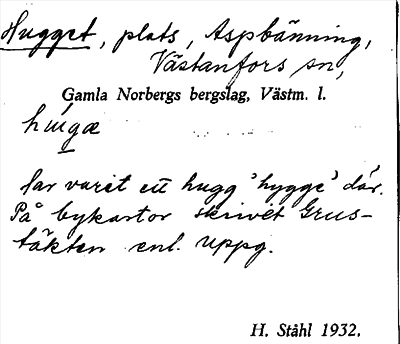 Hugget, plats, Aspbänning,
Västanfors sn,
Gamla Norbergs bergslag, Västm. l.
húgæ
har varit ett hugg 'hygge' där.
På bykartor skrivet Grus-
täkten enl. uppg.
H. Ståhl 1932.